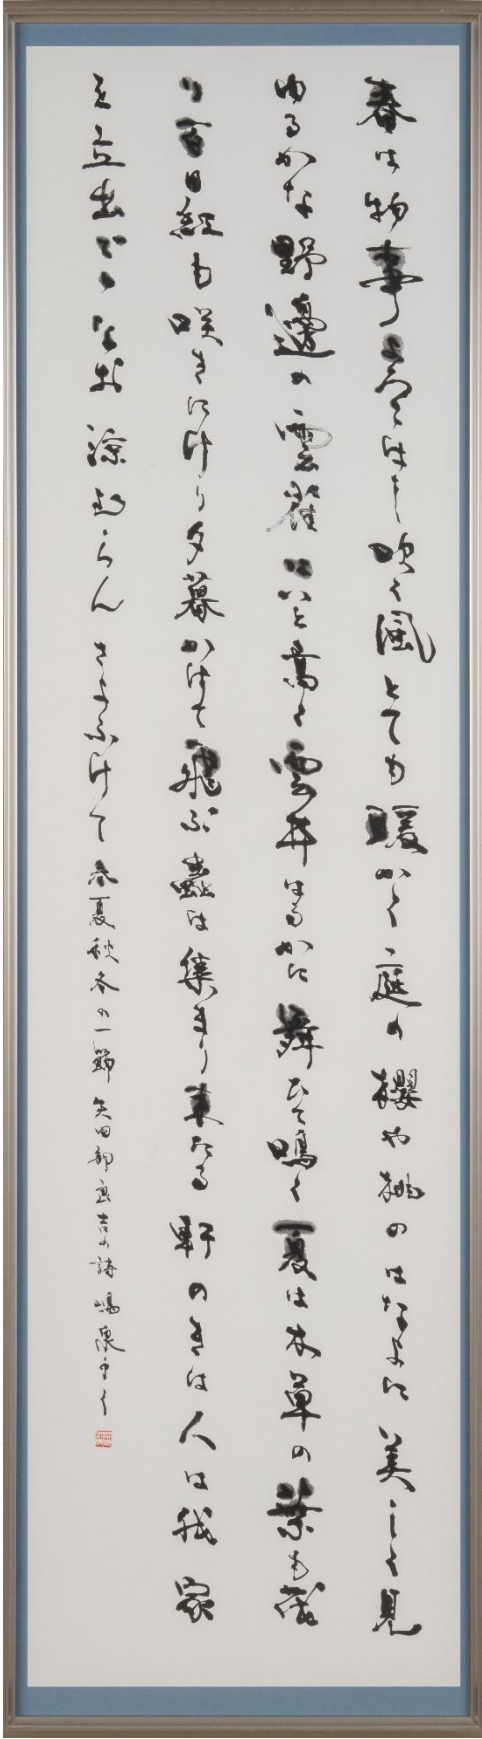 春は物事よろこばし吹く風とても暖かく庭の櫻や桃のはなよに美しく見
ゆるかな野邊の雲雀はいと高く雲井はるかに舞ひて鳴く夏は木草の葉も茂
り百日紅も咲きにけり夕暮かけて飛ぶ蟲は集まり来たる軒のきは人は我家
を立出でゝなお涼むらんさよふけて 春夏秋冬の一節 矢田部良吉の詩